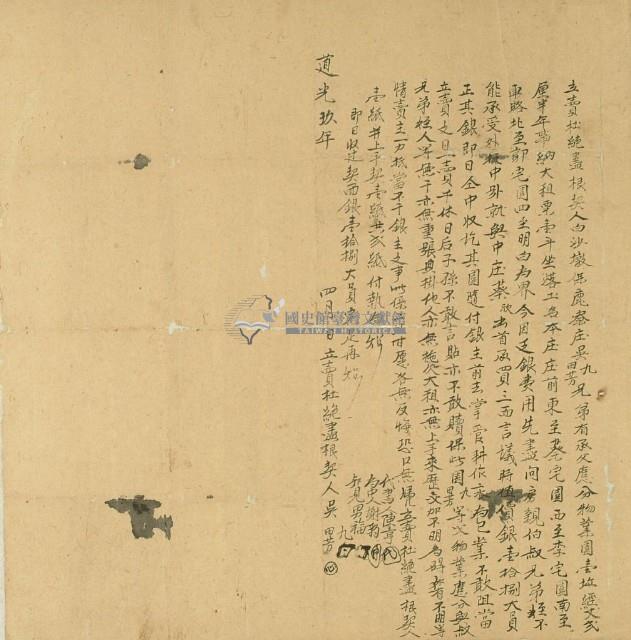 立賣杜絕盡根契人白沙墩保鹿寮庄吳九田芳兄弟有承父應分物業園壹坵經丈
厘半年帶納大租粟壹斗坐落土名本庄庄前東至宅園西至李宅園南至
車路北至郭宅園四至明白為界今因乏銀費用先盡問房親伯叔兄弟姪不
能承受外托中外就與中庄蔡出首承買三面言議時值價銀壹拾捌大員
正其銀即日仝中收訖其園隨付銀主前去掌管耕作永為己業不敢阻當
立賣之日一賣千休日后子孫不敢言貼亦不敢贖保此園九田芳等父物業應分與叔
兄弟姪人等無干亦無重張典掛他人亦無拖欠大租亦無上手來歷交加不明為碍若有不明等
情賣主一力抵當不干銀主之事此係二比甘愿各無反悔恐口無憑立賣杜絕盡根契
壹紙并上手契壹紙共貳紙付執為炤
即日收過契面銀壹拾捌大員完足再炤
代書人陳
為中人謝
知見男福
道光玖年 四月 日立賣杜絕盡根契人吳九田芳
國史館臺灣文獻館
TAIWAN HISTORICA